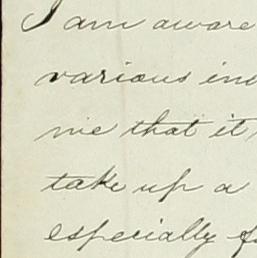 I am aware
various in
me that it
take up a
especially